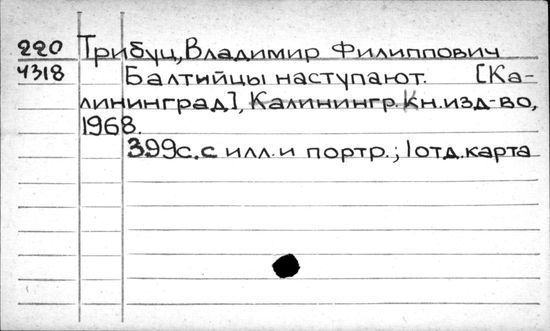 220 Трибуц, Владимир Филиппович
4318 Балтийцы наступают. [Ка-
лининград], Калинингр. Кн. изд-во,
1968.
399с. с илл. и портр.; 1 отд. карта